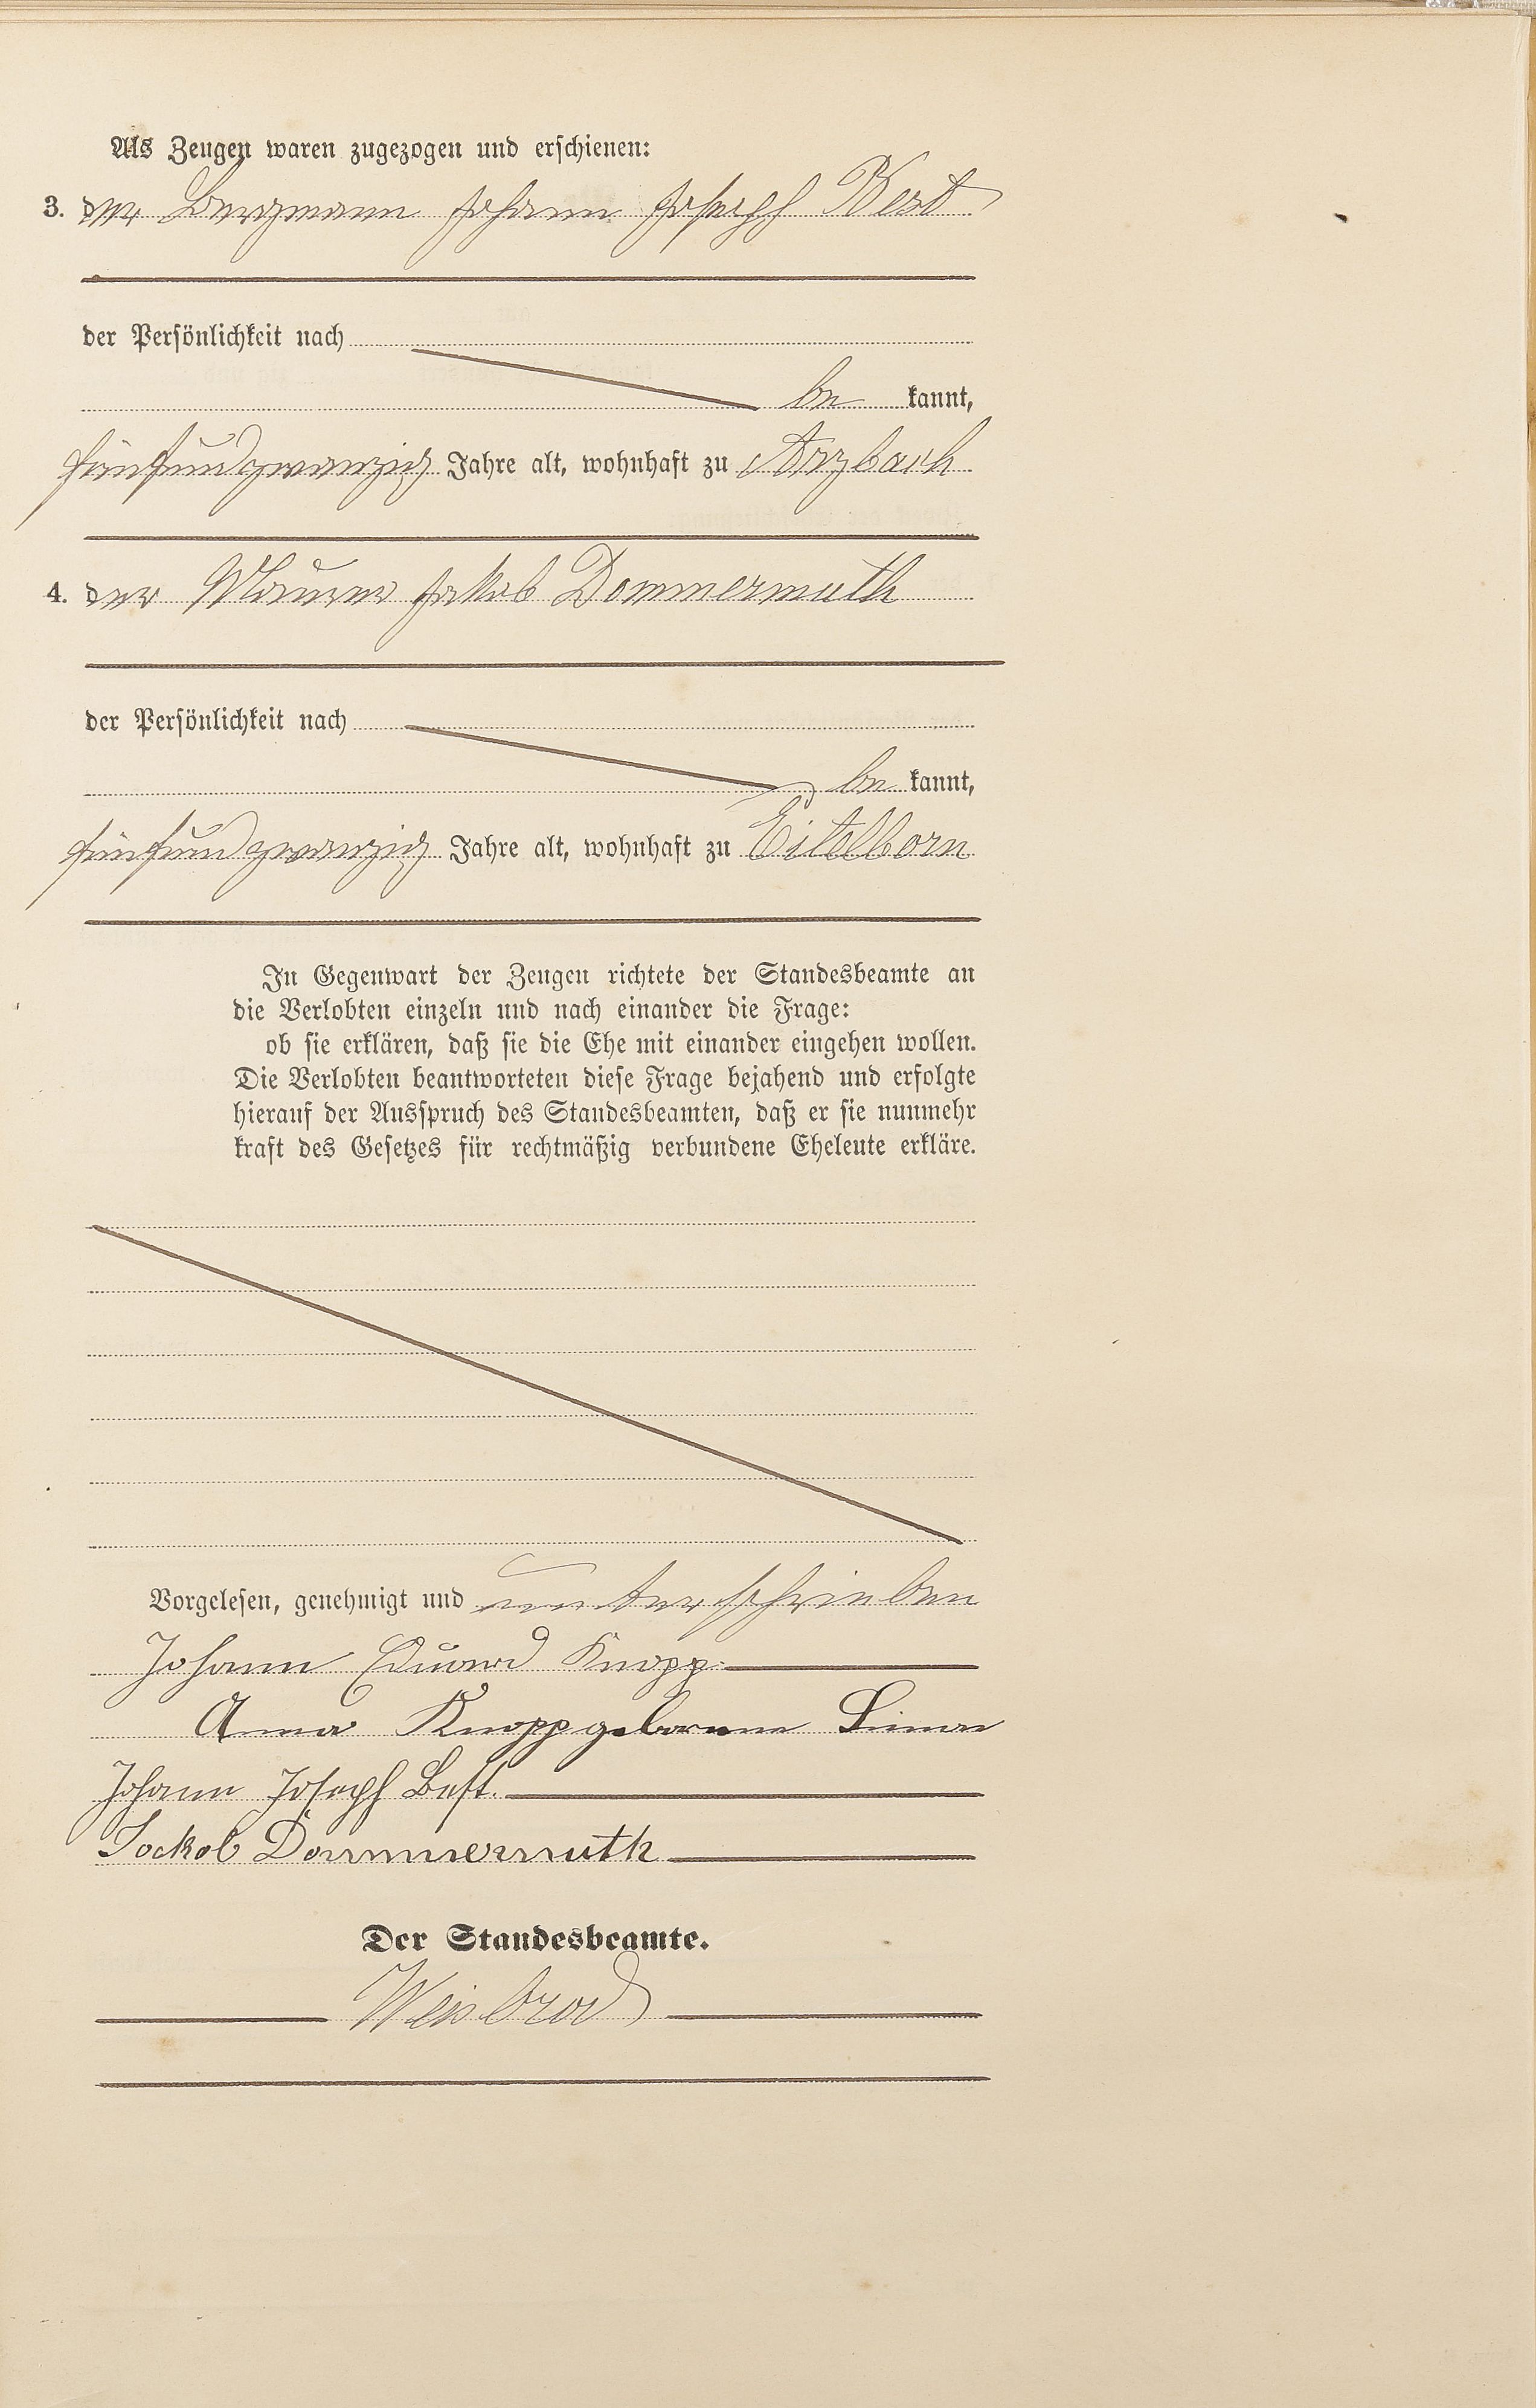 Als Zeugen waren zugezogen und erschienen:
3. der Bergmann Johann Joseph Best
der Persönlichkeit nach
be kannt,
fünfundzwanzig Jahre alt, wohnhaft zu Arzbach
4. der Maurer Jakob Dommermuth
der Persönlichkeit nach
be kannt,
fünfundzwanzig Jahre alt, wohnhaft zu Eitelborn
In Gegenwart der Zeugen richtete der Standesbeamte an
die Verlobten einzeln und nach einander die Frage:
ob sie erklären, daß sie die Ehe mit einander eingehen wollen.
Die Verlobten beantworteten diese Frage bejahend und erfolgte
hierauf der Ausspruch des Standesbeamten, daß er sie nunmehr
kraft des Gesetzes für rechtmäßig verbundene Eheleute erkläre.
Vorgelesen, genehmigt und unterschrieben
Johann Eduard Knopp.
Anna Knopp geborene Simon
Johann Joseph Best.
Jackob Dommermuth
Der Standesbeamte.
Weisbrod